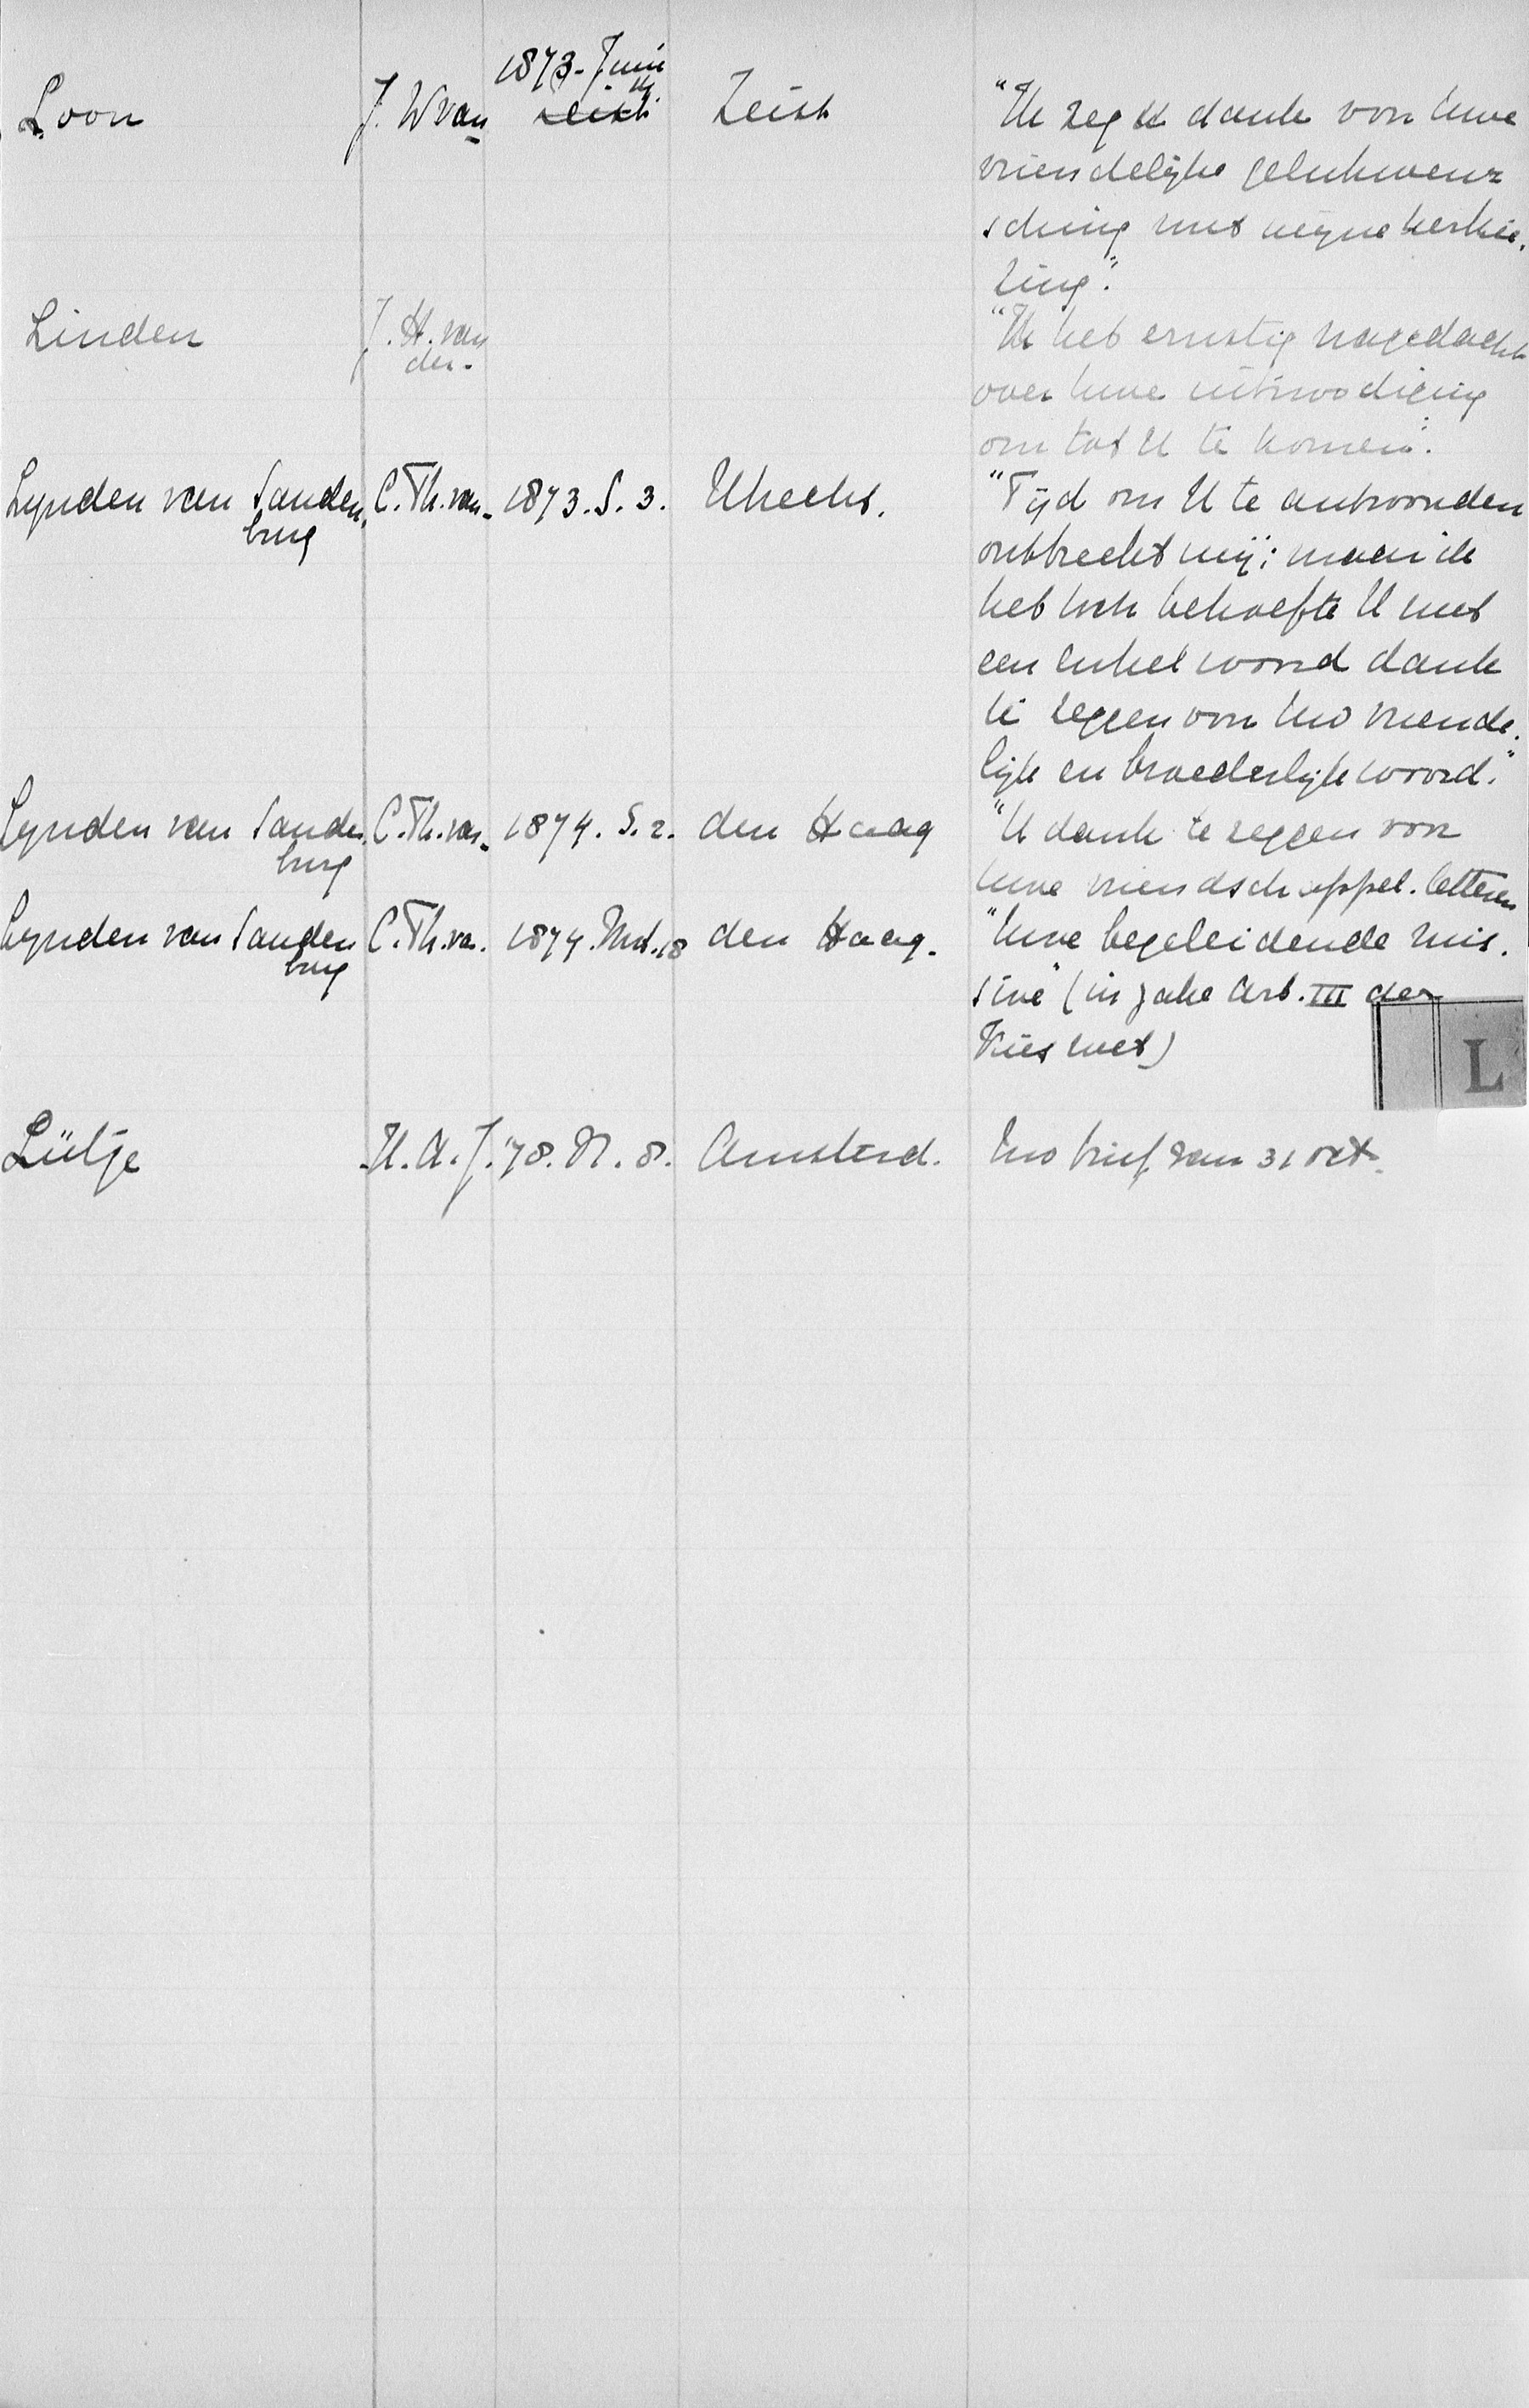 Loon J. W van 1873. Juni Zeist "Ik zeg U dank voor Uwe
vriendelijke gelukwen-
sching met mijne herkie-
zing".
Linden J. H. van der. "Ik heb ernstig nagedacht
over Uwe uitnoodiging
om tot U te komen".
Lynden van Sanden- C. Th. van 1873. S. 3. Utrecht. "Tijd om U te antwoorden
burg
ontbreekt mij; maar ik
heb toch behoefte U met
een enkel woord dank
te zeggen voor Uw vriende-
lijk en broederlijk woord."
Lynden van Sanden- C. Th. van 1874. S. 2. den Haag "U dank te zeggen voor
burg
Uwe vriendschappel. letteren
Lynden van Sanden C. Th. van 1874. 18 den Haag. "Uwe begeleidende mis-
burg
sive" (in zake Art. III der
Kieswet)
L
Lütje H. A. J. '78. N. 8. Amsterd. Uw brief van 31 oct.